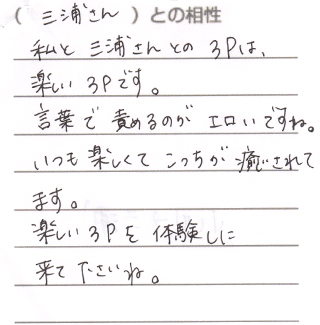 ( 三浦さん ) との相性
私と三浦さんとの3Pは、
楽しい3Pです。
言葉で責めるのがエロいですね。
いつも楽しくてこっちが癒されて
ます。
楽しい3Pを体験しに
来て下さいね。